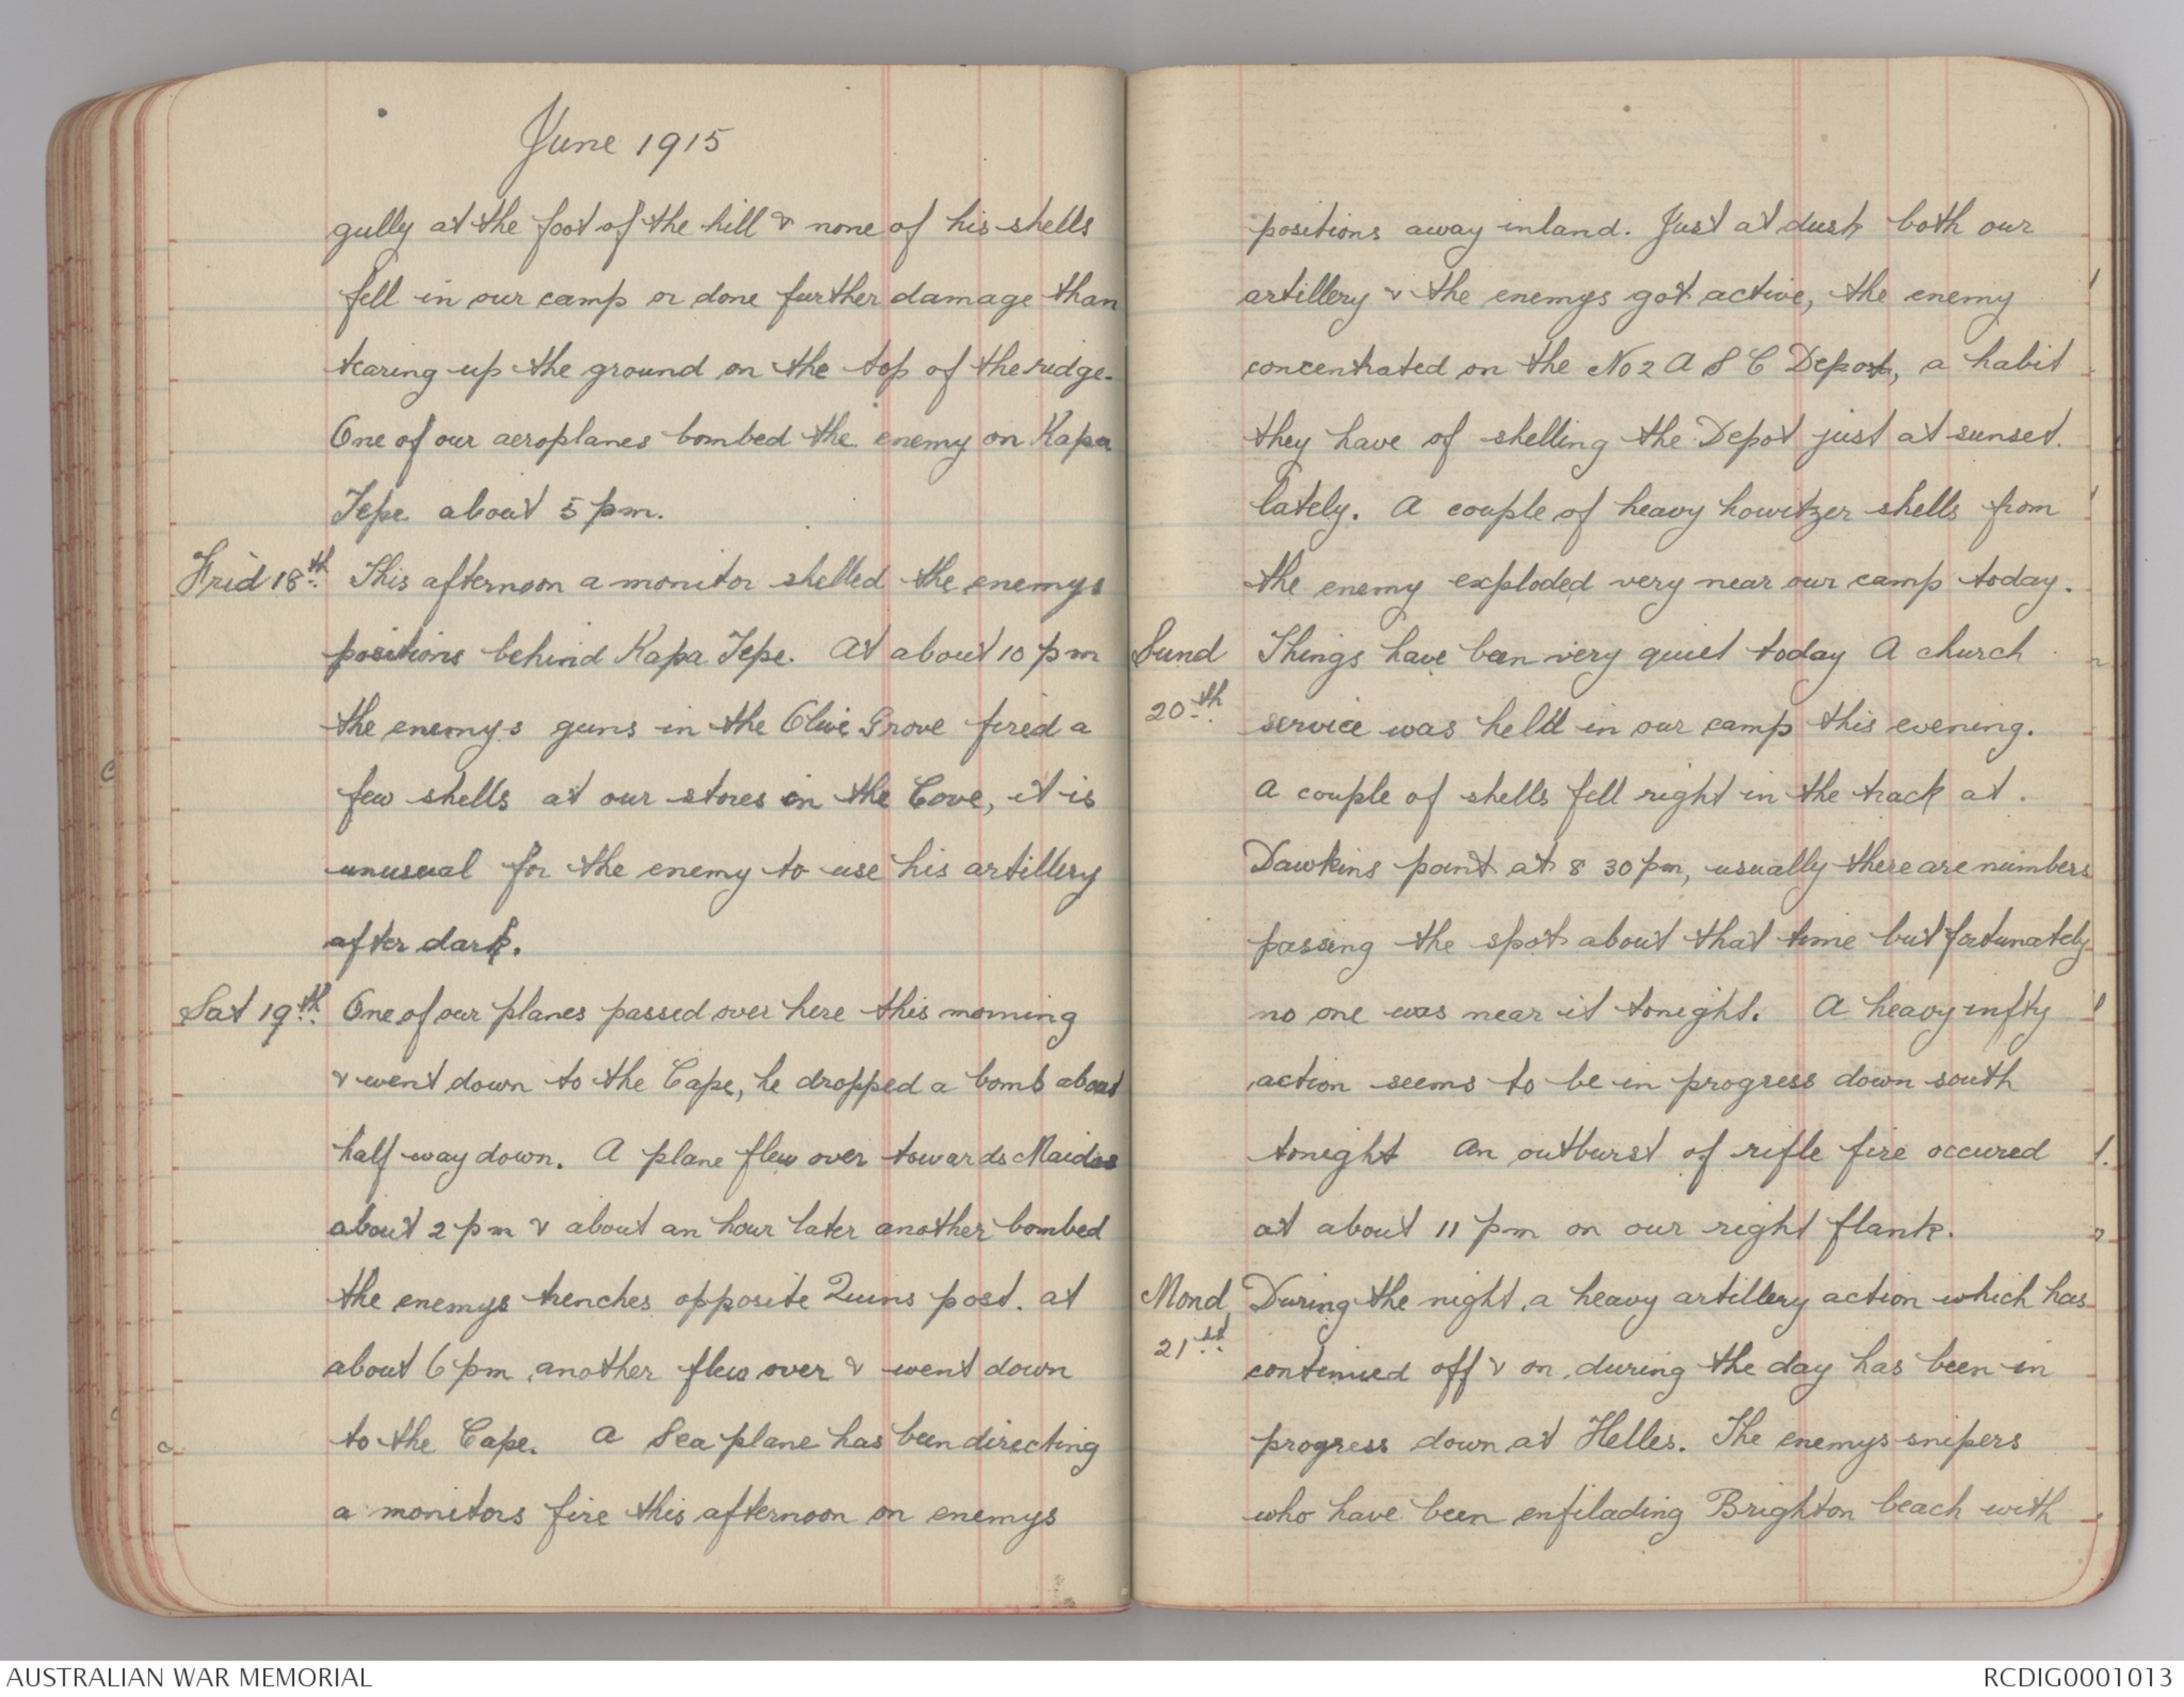 June 1915
gully at the foot of the hill & none of his shells
fell in our camp or done further damage than
tearing up the ground on the top of the ridge.
One of our aeroplanes bombed the enemy on Kapa
Tepe about 5 pm.
Frid 18th. This afternoon a monitor shelled the enemys
positions behind Kapa Tepe. At about 10 pm
the enemys guns in the Olive Grove fired a
few shells at our stores in the Cove, it is
unusual for the enemy to use his artillery
after dark.
Sat 19th. One of our planes passed over here this morning
& went down to the Cape, he dropped a bomb about
half way down. A plane flew over towards Maidos
about 2 pm & about an hour later another bombed
the enemys trenches opposite Quins post. at
about 6 pm another flew over & went down
to the Cape. A Sea plane has been directing
a monitors fire this afternoon on enemys
positions away inland. Just at dusk both our
artillery & the enemys got active, the enemy
concentrated on the No 2 A S C Depot, a habit
they have of shelling the Depot just at sunset.
lately. A couple of heavy howitzer shells from
the enemy exploded very near our camp today.
Sund Things have been very quiet today A church
20th. service was held in our camp this evening.
A couple of shells fell right in the track at.
Dawkins point at 8 30 pm, usually there are numbers
passing the spot about that time but fortunately
no one was near it tonight. A heavy infty
action seems to be in progress down south
tonight An outburst of rifle fire occured
at about 11 pm on our right flank.
Mond During the night, a heavy artillery action which has
21st. continued off & on during the day has been in
progress down at Helles. The enemys snipers
who have been enfilading Brighton beach with
AUSTRALIAN WAR MEMORIAL
RCDIG0001013